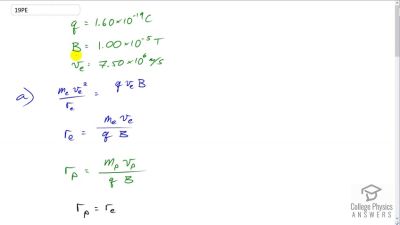 19PE
q = 1.60 × 10⁻¹⁹ C
B = 1.00 × 10⁻⁵ T
vₑ = 7.50 × 10⁶ m/s
a) mₑ vₑ² / rₑ = q vₑ B
rₑ = mₑ vₑ / q B
rₚ = mₚ vₚ / q B
rₚ = rₑ
College Physics
ANSWERS